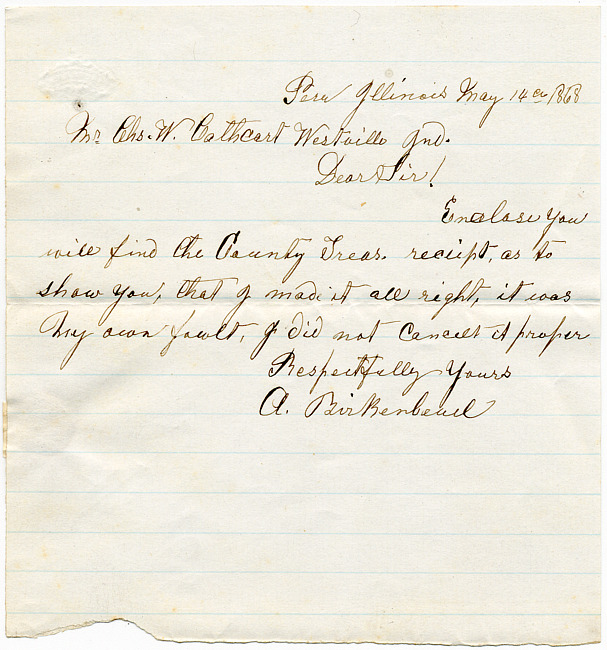 Peru Illinois May 14th 1868
Mr Chs. W. Cathcart Westville Ind.
Dear Sir!
Enclose you
will find the County Treas. reciept, as to
show you, that I made it all right, it was
my own fowlt, I did not cancell it proper
Respectfully Yours
A. Birkenbeuel